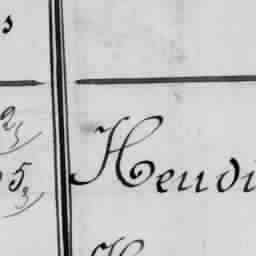 s
2/3
5/3 Heudi